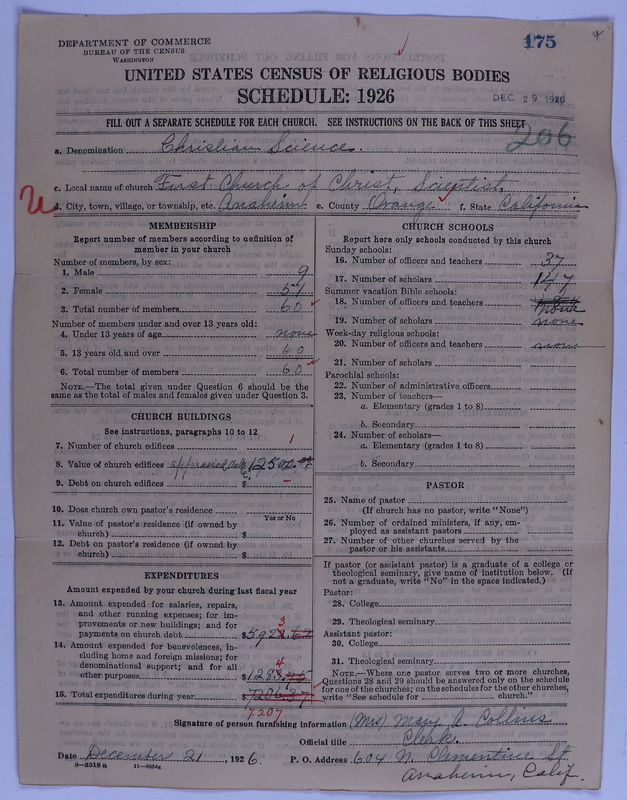 DEPARTMENT OF COMMERCE
BUREAU OF THE CENSUS
WASHINGTON
175
UNITED STATES CENSUS OF RELIGIOUS BODIES
SCHEDULE: 1926
DEC 29 1926
FILL OUT A SEPARATE SCHEDULE FOR EACH CHURCH. SEE INSTRUCTIONS ON THE BACK OF THIS SHEET
206
a. Denomination Christian Science.
c. Local name of church First Church of Christ, Scientist.
d. City, town, village, or township, etc. Anaheim e. County Orange f. State California
MEMBERSHIP
Report number of members according to definition of
member in your church
Number of members, by sex:
1. Male 9
2. Female 51
3. Total number of members 60
Number of members under and over 13 years old:
4. Under 13 years of age none
5. 13 years old and over 60
6. Total number of members 60
NOTE.—The total given under Question 6 should be the
same as the total of males and females given under Question 3.
CHURCH BUILDINGS
See instructions, paragraphs 10 to 12
7. Number of church edifices 1
8. Value of church edifices $12500
9. Debt on church edifices $ –
10. Does church own pastor's residence
Yes or No
11. Value of pastor's residence (if owned by
church) $
12. Debt on pastor's residence (if owned by
church) $
EXPENDITURES
Amount expended by your church during last fiscal year
13. Amount expended for salaries, repairs,
and other running expenses; for im-
provements or new buildings; and for
payments on church debt $5922.62
3
14. Amount expended for benevolences, in-
cluding home and foreign missions; for
denominational support; and for all
other purposes $1283.75
4
15. Total expenditures during year $7206.37
7207
CHURCH SCHOOLS
Report here only schools conducted by this church
Sunday schools:
16. Number of officers and teachers 37
17. Number of scholars 147
Summer vacation Bible schools:
18. Number of officers and teachers none
19. Number of scholars none
Week-day religious schools:
20. Number of officers and teachers none
21. Number of scholars
Parochial schools:
22. Number of administrative officers
23. Number of teachers—
a. Elementary (grades 1 to 8)
b. Secondary
24. Number of scholars—
a. Elementary (grades 1 to 8)
b. Secondary
PASTOR
25. Name of pastor
(If church has no pastor, write "None")
26. Number of ordained ministers, if any, em-
ployed as assistant pastors
27. Number of other churches served by the
pastor or his assistants
If pastor (or assistant pastor) is a graduate of a college or
theological seminary, give name of institution below. (If
not a graduate, write "No" in the space indicated.)
Pastor:
28. College
29. Theological seminary
Assistant pastor:
30. College
31. Theological seminary
NOTE.—Where one pastor serves two or more churches,
Questions 28 and 29 should be answered only on the schedule
for one of the churches; on the schedules for the other churches,
write "See schedule for church."
Signature of person furnishing information (Mrs) Mary D. Collins
Official title Clerk.
Date December 21, 1926. P. O. Address 604 N. Clementine St
8-5518a 11-9054g
Anaheim, Calif.